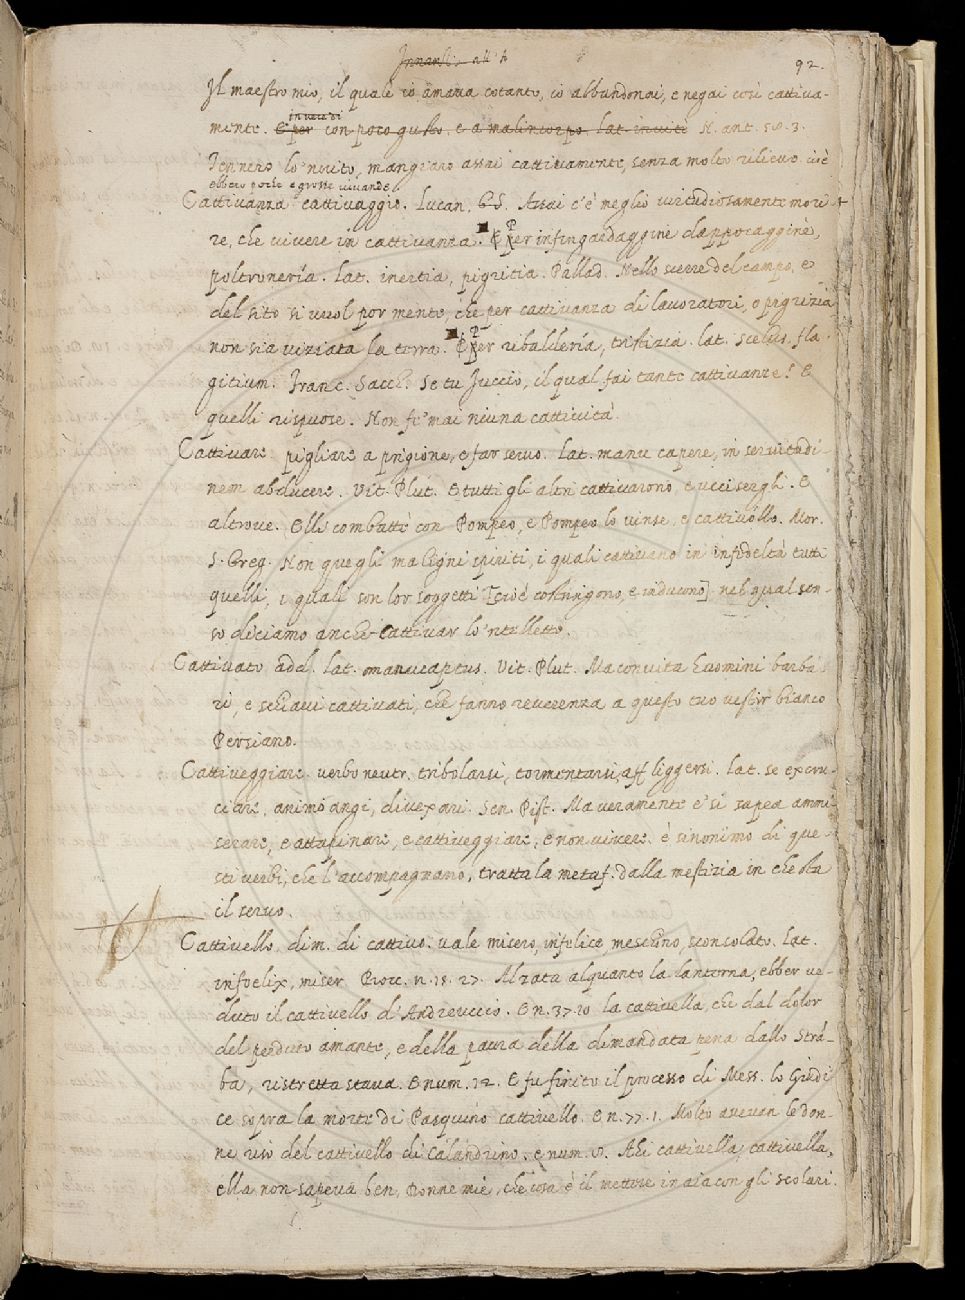 Innanzi all' A
92.
Il maestro mio, il quale io amava cotanto, io abbandonai, e negai così cattiva-
in vece di
mente. E per con poco gusto, e a malincorpo. lat. invite N. ant. 58. 3.
Tennero lo 'nvito, mangiaro assai cattivamente, senza molto rilievo cioè
ebbero poche e grosse vivande
Cattivanza cattivaggio. Lucan. Assai c'è meglio virtudiosamente mori-
re, che vivere in cattivanza. ¶ Per infingardaggine dappocaggine,
poltronería. lat. inertia, pigritia. Pallad. Nello scerre del campo, e
del sito si vuol por mente, che per cattivanza di lavoratori, o pigrizia
non sia viziata la terra. ¶ Per ribaldería, tristizia. lat. scelus, fla-
gitium. Franc. Sacch. Se tu Juccio, il qual fai tante cattivanze! E
quelli rispuose. Non fe' mai niuna cattività.
Cattivare pigliare a prigione, e far servo. lat. manu capere, in servitudi-
nem abducere. Vit. Plut. E tutti gli altri cattivarono, e uccisergli. E
altrove. Elli combattè con Pompeo, e Pompeo lo vinse, e cattivollo. Mor.
S. Greg. Non quegli maligni spiriti, i quali cattivano in infideltà tutti
quelli, i quali son lor soggetti [cioè costringono, e inducono] nel qual sen-
so diciamo anche Cattivar lo 'ntelletto.
Cattivato add. lat. manucaptus. Vit. Plut. Ma convita huomini barba-
ri, e schiavi cattivati, che fanno reverenza a questo tuo vestir bianco
Persiano.
Cattiveggiare verbo neutr. tribolarsi, tormentarsi, affliggersi. lat. se excru-
ciare, animo angi, divexari. Sen. Pist. Ma veramente e' si sapea ammi-
serare, e attapinare, e cattiveggiare, e non vivere. è sinonimo di que-
sti verbi, che l'accompagnano, tratta la metaf. dalla mestizia in che sta
il servo.
Cattivello, dim. di cattivo. vale misero, infelice, meschino, sconsolato. lat.
infoelix, miser Bocc. n. 15. 27. Alzata alquanto la lanterna, ebber ve-
duto il cattivello d'Andreuccio. E n. 37. 10 la cattivella, che dal dolor
del perduto amante, e della paura della dimandata pena dallo Stra-
ba, ristretta stava. E num. 12. E fu finito il processo di Mess. lo Giudi-
ce sopra la morte di Pasquino cattivello. E n. 77. 1. Molto avevan le don-
ne riso del cattivello di Calandrino. e num. 8. Ahi cattivella, cattivella,
ella non sapeva ben, Donne mie, che cosa è il mettere in aia con gli scolari.